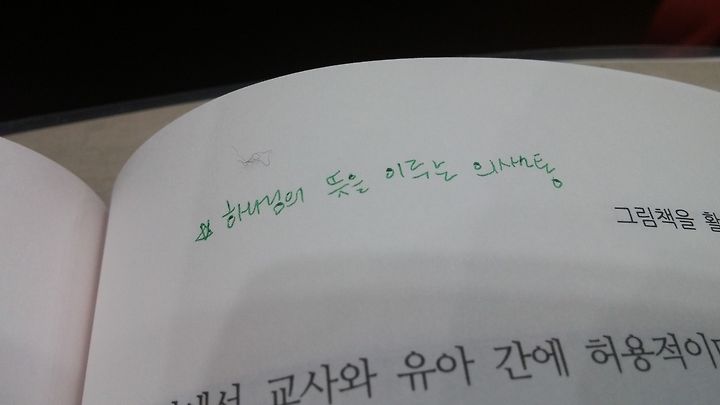 ☆ 하나님의 뜻을 이루는 의사소통
그림책을 활
에서 교사와 유아 간에 허용적이